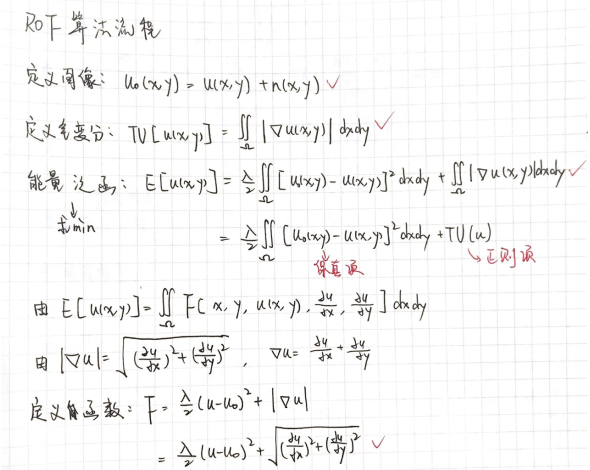 ROF算法流程
定义图像: u₀(x,y) = u(x,y) + n(x,y) ✓
定义全变分: TV[u(x,y)] = ∬_Ω |∇u(x,y)| dxdy ✓
能量泛函: E[u(x,y)] = λ/2 ∬_Ω [u₀(x,y) - u(x,y)]² dxdy + ∬_Ω |∇u(x,y)| dxdy ✓
↓
求min
= λ/2 ∬_Ω [u₀(x,y) - u(x,y)]² dxdy + TV(u)
保真项 ↘正则项
由 E[u(x,y)] = ∬_Ω F[x, y, u(x,y), ∂u/∂x, ∂u/∂y] dxdy
由 |∇u| = √((∂u/∂x)² + (∂u/∂y)²) , ∇u = ∂u/∂x + ∂u/∂y
定义函数: F = λ/2 (u-u₀)² + |∇u|
= λ/2 (u-u₀)² + √((∂u/∂x)² + (∂u/∂y)²) ✓